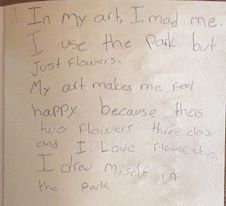 In my art, I mad me.
I use the Park but
Just flowers.
My art makes me feel
happy because thers
two flowers three
and I Love flower
I drew myself in
the park